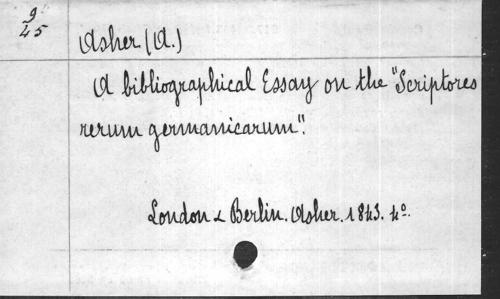 9
45
Asher (A.)
A bibliographical Essay on the "Scriptores
rerum germanicarum".
London & Berlin. Asher. 1843. 4o.